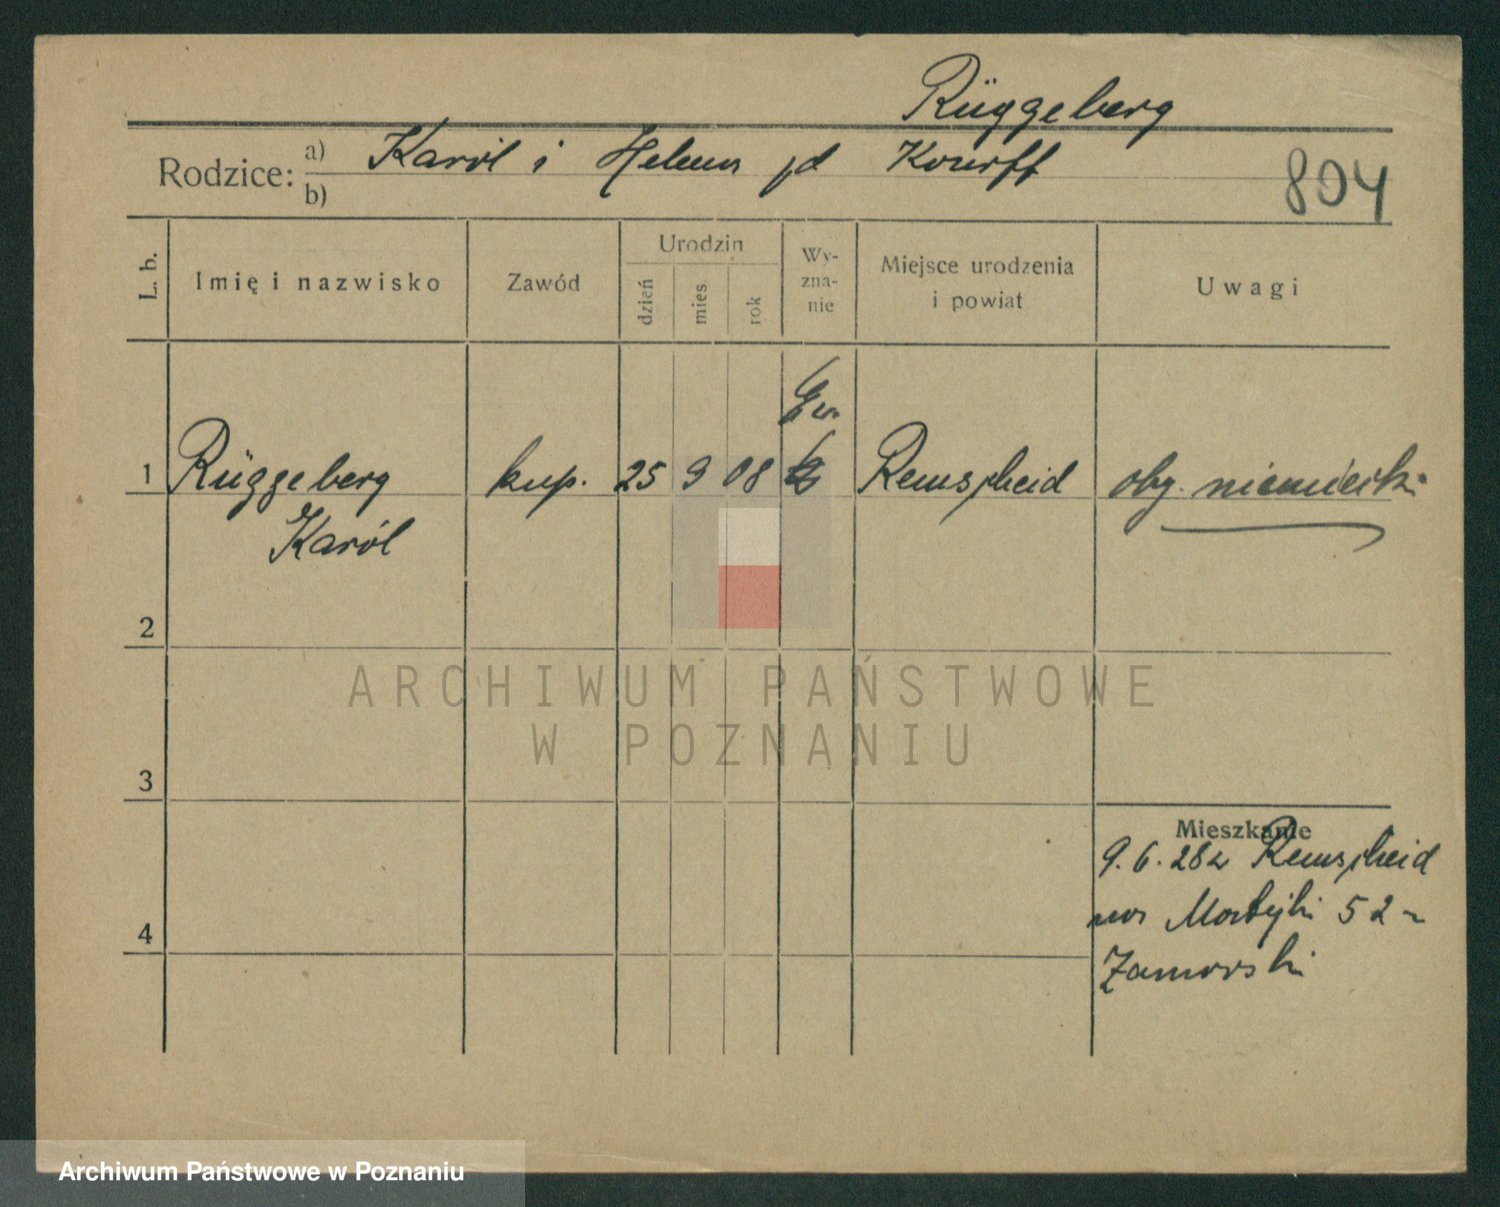 Rüggeberg
Rodzice: a) Karól i Helena pd
b)
804
L. b. Imię i nazwisko Zawód Urodzin dzień mies rok Wy-zna-nie Miejsce urodzenia i powiat Uwagi
Ew.
1 Rüggeberg kup. 25 9 08 Remscheid oby. niemiecki
Karól
2
3
Mieszkanie
9.6.28 z Remscheid
na 52
4
Zamorski
ARCHIWUM PAŃSTWOWE
W POZNANIU
Archiwum Państwowe w Poznaniu